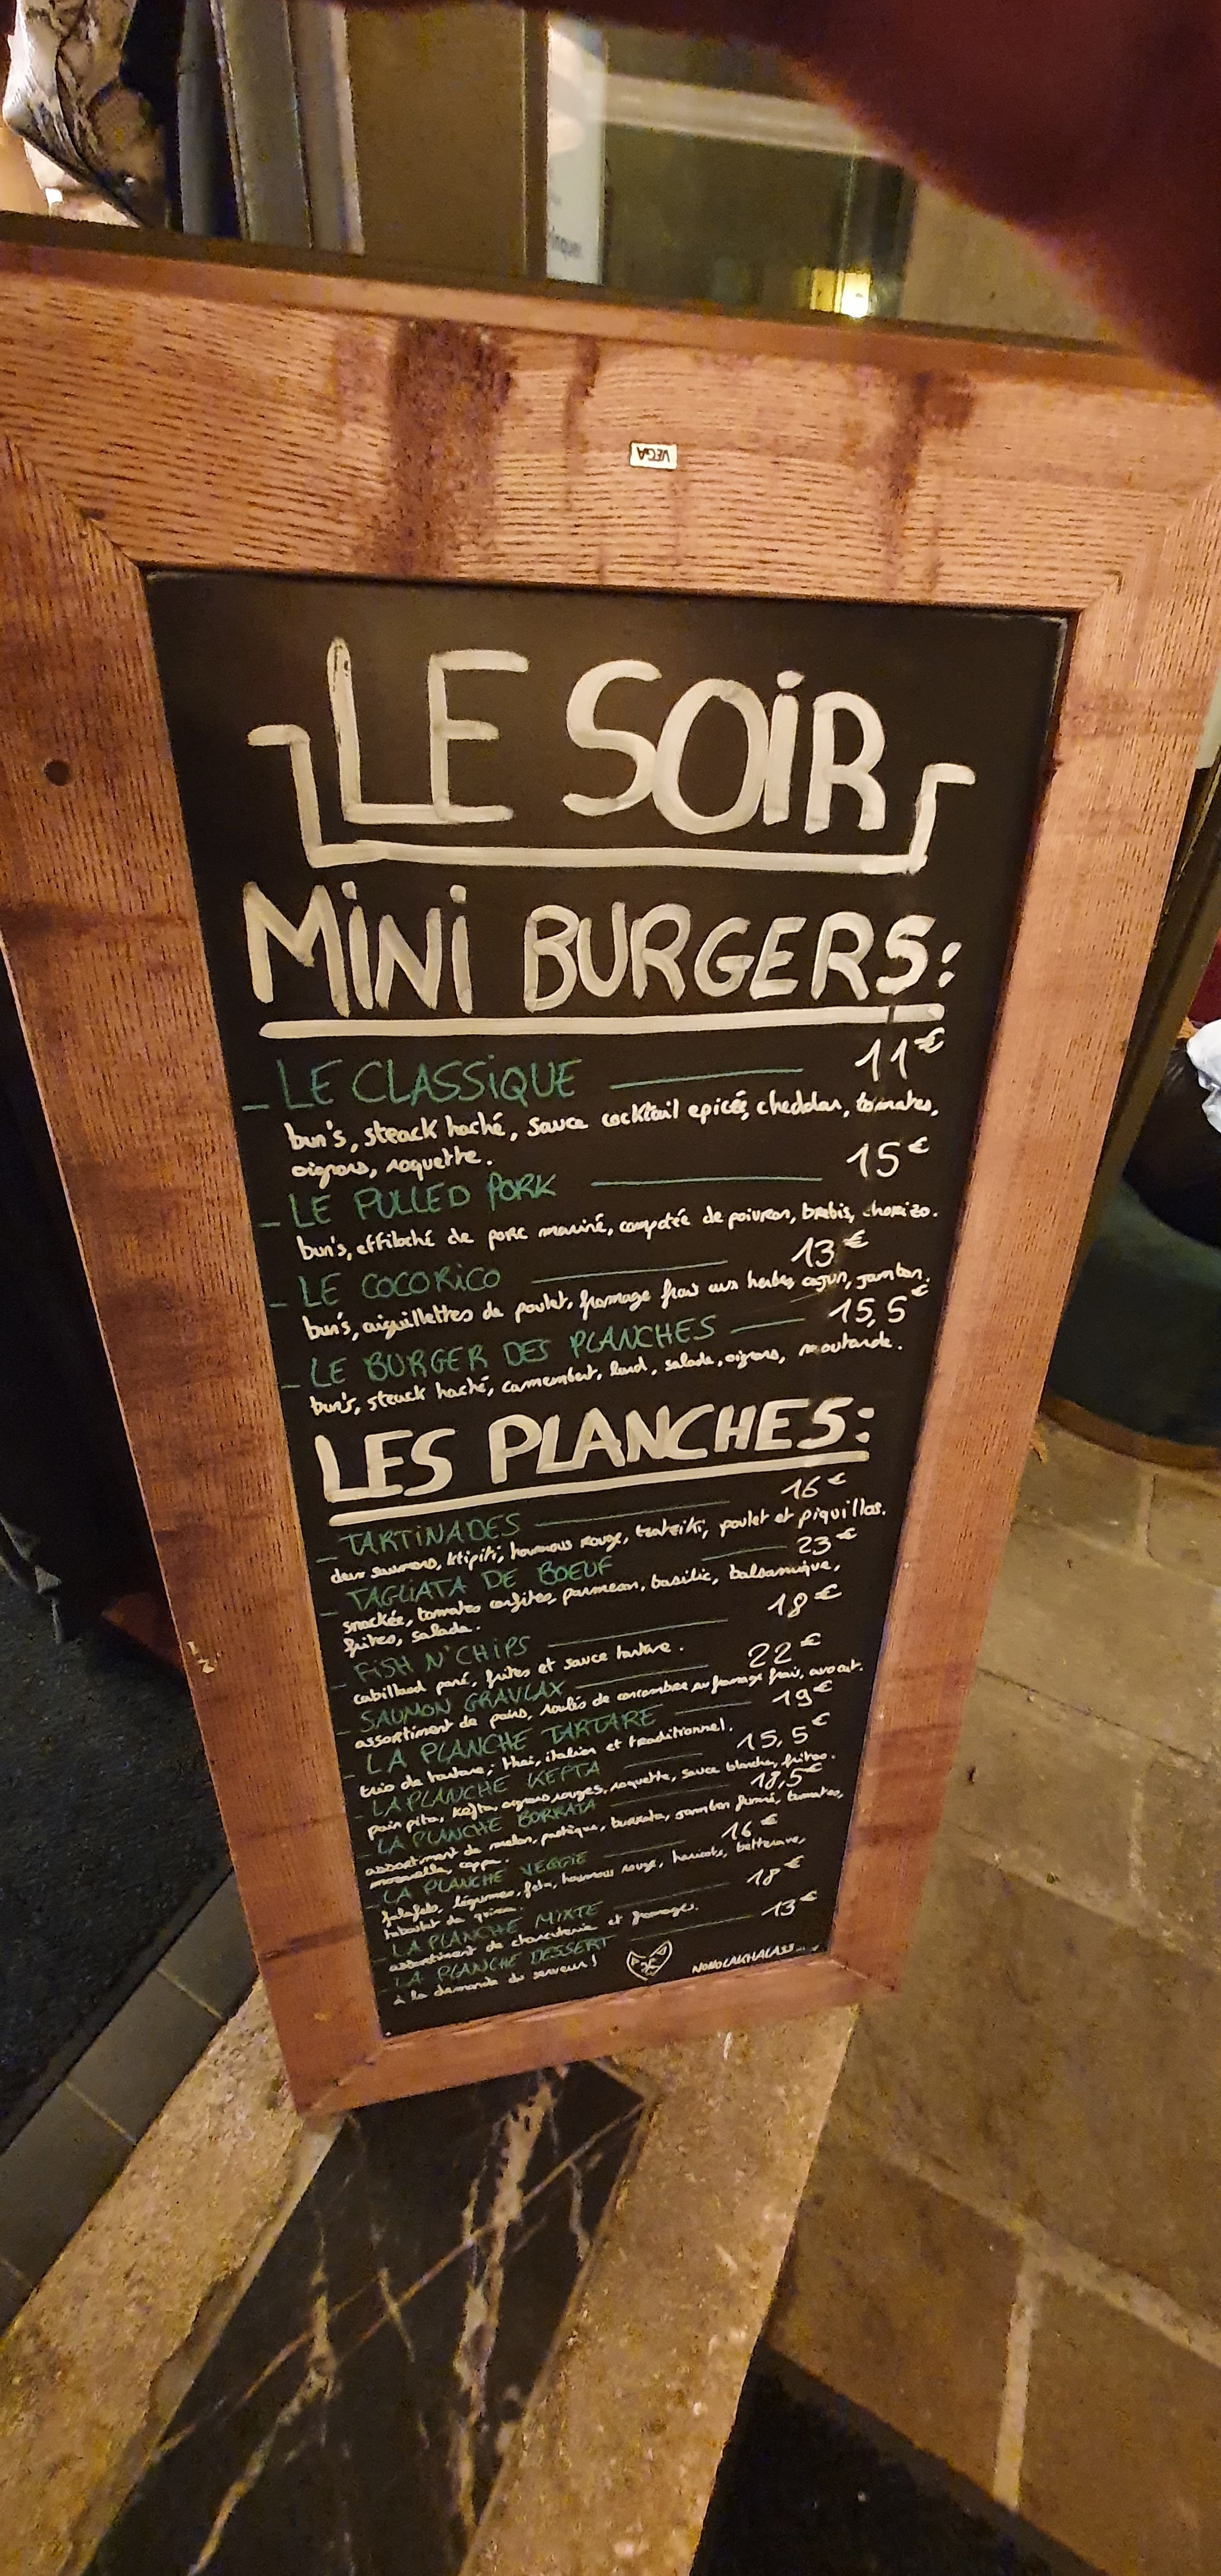 VEGA
LE SOIR
MINI BURGERS:
- LE CLASSIQUE 11€
bun's, steack haché, sauce cocktail epicée, cheddar, tomates,
oignons, roquette.
- LE PULLED PORK 15€
bun's, effiloché de porc mariné, compotée de poivron, brebis, chorizo.
- LE COCORICO 13€
bun's, aiguillettes de poulet, fromage frais aux herbes, cajun, jambon.
- LE BURGER DES PLANCHES 15,5€
bun's, steack haché, camembert, lard, salade, oignons, moutarde.
LES PLANCHES:
- TARTINADES 16€
deux saumons, ktipiti, houmous rouge, tzatziki, poulet et piquillos.
- TAGLIATA DE BOEUF 23€
snackée, tomates confites, parmesan, basilic, balsamique,
frites, salade.
- FISH N'CHIPS 18€
cabillaud pané, frites et sauce tartare.
- SAUMON GRAVLAX 22€
assortiment de pains, roulés de concombre au fromage frais, avocat.
- LA PLANCHE TARTARE 19€
trio de tartare; thaï, italien et traditionnel.
- LA PLANCHE KEFTA 15,5€
pain pita, kefta, oignons rouges, roquette, sauce blanche, frites.
- LA PLANCHE BORRATA 18,5€
assortiment de melon, pastèque, burrata, jambon fumé, tomates,
mozzarella, coppa.
- LA PLANCHE VEGGIE 16€
falafels, légumes, feta, houmous rouge, haricots, betterave,
taboulet de quinoa.
- LA PLANCHE MIXTE 18€
assortiment de charcuterie et fromages.
- LA PLANCHE DESSERT 13€
à la demande du serveur!